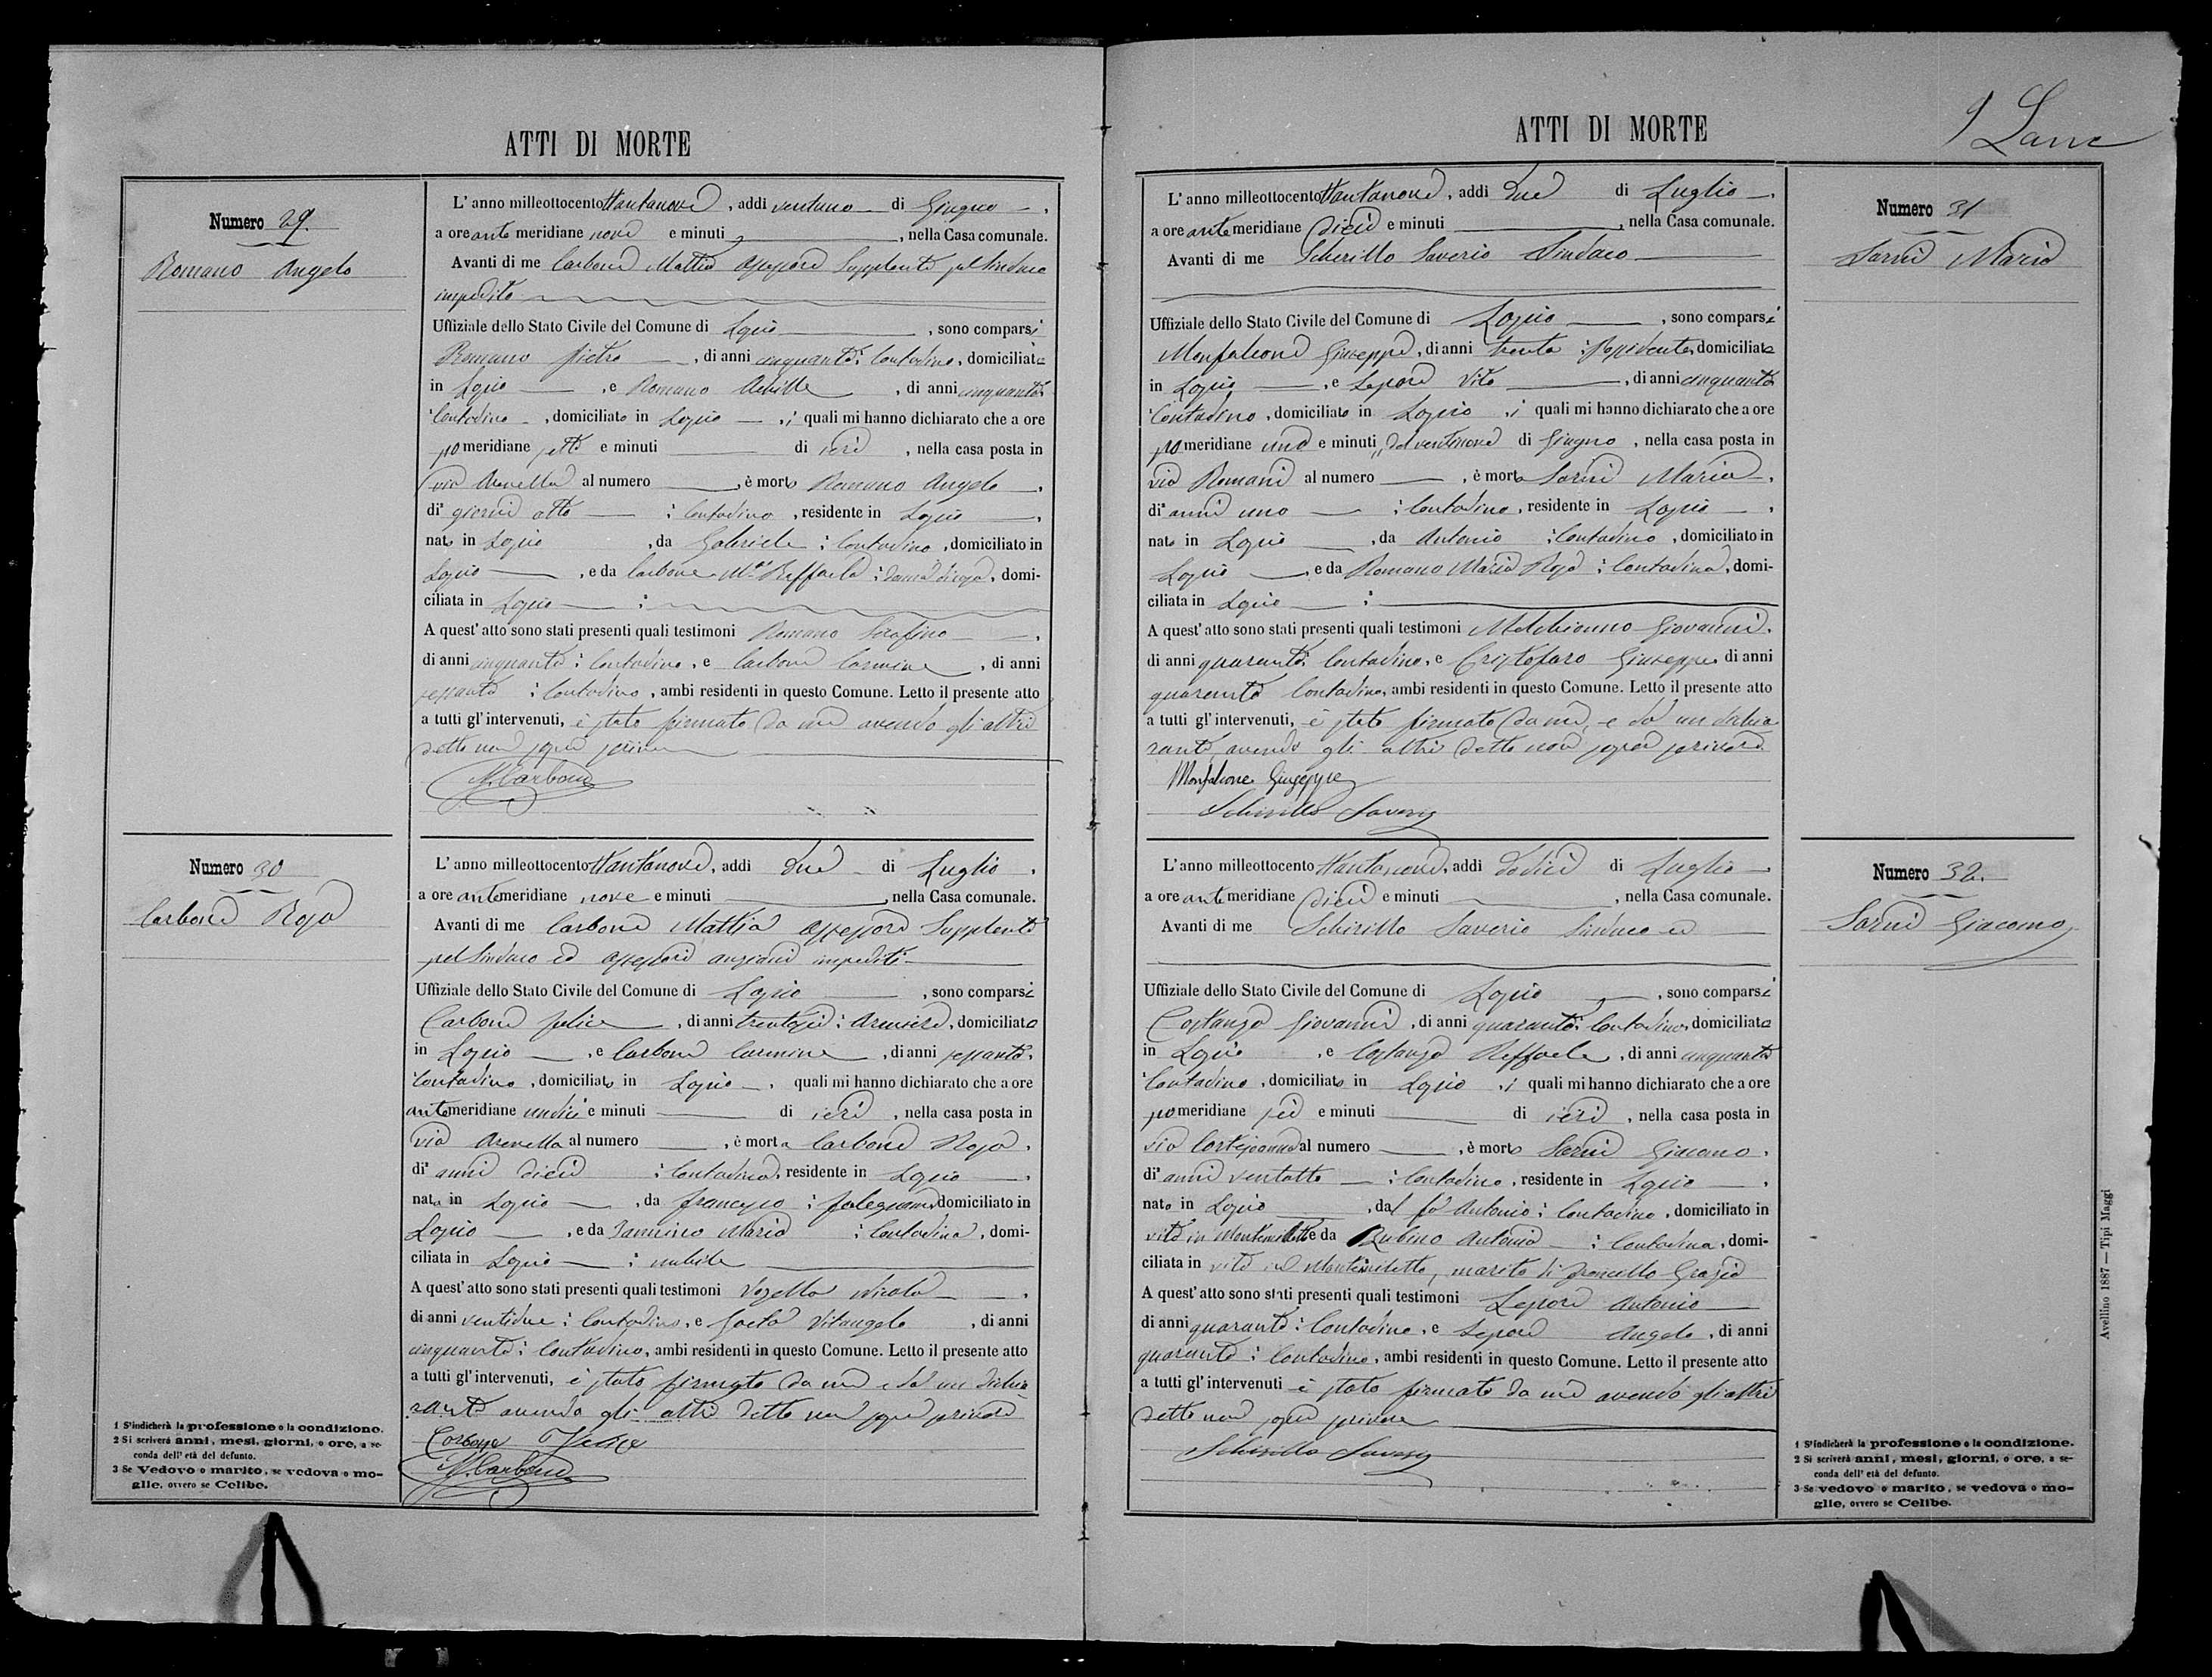 ATTI DI MORTE
Numero 29.
Romano Angelo
L'anno milleottocento ottantanove, addì ventuno di Giugno,
a ore ante meridiane nove e minuti , nella Casa comunale.
Avanti di me Carbone Mattia Assessore Supplente pel Sindaco
impedito
Uffiziale dello Stato Civile del Comune di Lapio , sono comparsi
Romano Pietro , di anni cinquanta: Contadino, domiciliato
in Lapio , e Romano Achille , di anni cinquanta:
Contadino , domiciliato in Lapio , i quali mi hanno dichiarato che a ore
pomeridiane sette e minuti di ieri , nella casa posta in
via Arenella al numero , è morto Romano Angelo ,
di giorni otto : Contadino , residente in Lapio ,
nato in Lapio , da Gabriele : Contadino , domiciliato in
Lapio , e da Carbone Ma Raffaela : , domi-
ciliata in Lapio :
A quest'atto sono stati presenti quali testimoni Romano Serafino ,
di anni cinquanta : Contadino, e Carbone Carmine , di anni
sessanta : Contadino , ambi residenti in questo Comune. Letto il presente atto
a tutti gl'intervenuti, è stato firmato da me avendo gli altri
detto non saper scrivere
M. Carbone
Numero 30
Carbone Rosa
L'anno milleottocento ottantanove, addì due di Luglio ,
a ore antemeridiane nove e minuti , nella Casa comunale.
Avanti di me Carbone Mattia Assessore Supplente
pel Sindaco ed assessori anziani impediti
Uffiziale dello Stato Civile del Comune di Lapio , sono comparsi
Carbone Felice , di anni trentasei : Armiere, domiciliato
in Lapio , e Carbone Carmine , di anni sessanta:
Contadino , domiciliato in Lapio , quali mi hanno dichiarato che a ore
antemeridiane undici e minuti di ieri , nella casa posta in
via Arenella al numero , è morta Carbone Rosa ,
di anni dieci : Contadina, residente in Lapio ,
nata in Lapio , da Francesco : falegname domiciliato in
Lapio , e da Iannino Maria : Contadina , domi-
ciliata in Lapio : nubile
A quest'atto sono stati presenti quali testimoni Vozella Nicola ,
di anni ventidue : Contadino, e Gaeta Vitangelo , di anni
cinquanta : Contadino, ambi residenti in questo Comune. Letto il presente atto
a tutti gl'intervenuti, è stato firmato da me e dal un dichia
rante avendo gli altri detto non saper scrivere
Carbone Felice
M. Carbone
1 S'indicherà la professione o la condizione.
2 Si scriverà anni, mesi, giorni, o ore, a se-
conda dell'età del defunto.
3 Se Vedovo o marito, se vedova o mo-
glie, ovvero se Celibe.
ATTI DI MORTE
Numero 31
Sarni Maria
L'anno milleottocento ottantanove, addì due di Luglio ,
a ore ante meridiane dieci e minuti , nella Casa comunale.
Avanti di me Schirillo Saverio Sindaco
Uffiziale dello Stato Civile del Comune di Lapio , sono comparsi
Monfalcone Giuseppe , di anni trenta : Possidente, domiciliato
in Lapio , e Lepore Vito , di anni cinquanta
Contadino , domiciliato in Lapio , i quali mi hanno dichiarato che a ore
pomeridiane una e minuti " del ventinove di Giugno , nella casa posta in
via Romani al numero , è morta Sarni Maria ,
di anni uno : Contadina , residente in Lapio ,
nata in Lapio , da Antonio : Contadino , domiciliato in
Lapio , e da Romano Maria Rosa : Contadina , domi-
ciliata in Lapio :
A quest'atto sono stati presenti quali testimoni Melchionno Giovanni ,
di anni quaranta: Contadino, e Cristofaro Giuseppe di anni
quaranta Contadino, ambi residenti in questo Comune. Letto il presente atto
a tutti gl'intervenuti, è stato firmato da me, e da un dichia
rante, avendo gli altri detto non saper scrivere
Monfalcone Giuseppe
Schirillo Saverio
Numero 32.
Sarni Giacomo
L'anno milleottocento ottantanove, addì dodici di Luglio ,
a ore ante meridiane dieci e minuti , nella Casa comunale.
Avanti di me Schirillo Saverio Sindaco ed
Uffiziale dello Stato Civile del Comune di Lapio , sono comparsi
Costanza Giovanni , di anni quaranta: Contadino, domiciliato
in Lapio , e Costanza Raffaele , di anni cinquanta
Contadino , domiciliato in Lapio , i quali mi hanno dichiarato che a ore
pomeridiane sei e minuti di ieri , nella casa posta in
via al numero , è morto Sarni Giacomo ,
di anni ventotto : Contadino , residente in Lapio ,
nato in Lapio , dal fu Antonio : Contadino , domiciliato in
vita in Montemiletto e da Rubino Antonia : Contadina , domi-
ciliata in vita in Montemiletto, marito di Grazia
A quest'atto sono stati presenti quali testimoni Lepore Antonio
di anni quaranta : Contadino , e Lepore Angelo , di anni
quaranta : Contadino , ambi residenti in questo Comune. Letto il presente atto
a tutti gl'intervenuti è stato firmato da me avendo gli altri
detto non saper scrivere
Schirillo Saverio
1 S'indicherà la professione o la condizione.
2 Si scriverà anni, mesi, giorni, o ore, a se-
conda dell'età del defunto.
3 Se vedovo o marito, se vedova o mo-
glie, ovvero se Celibe.
Avellino 1887 — Tipi Maggi